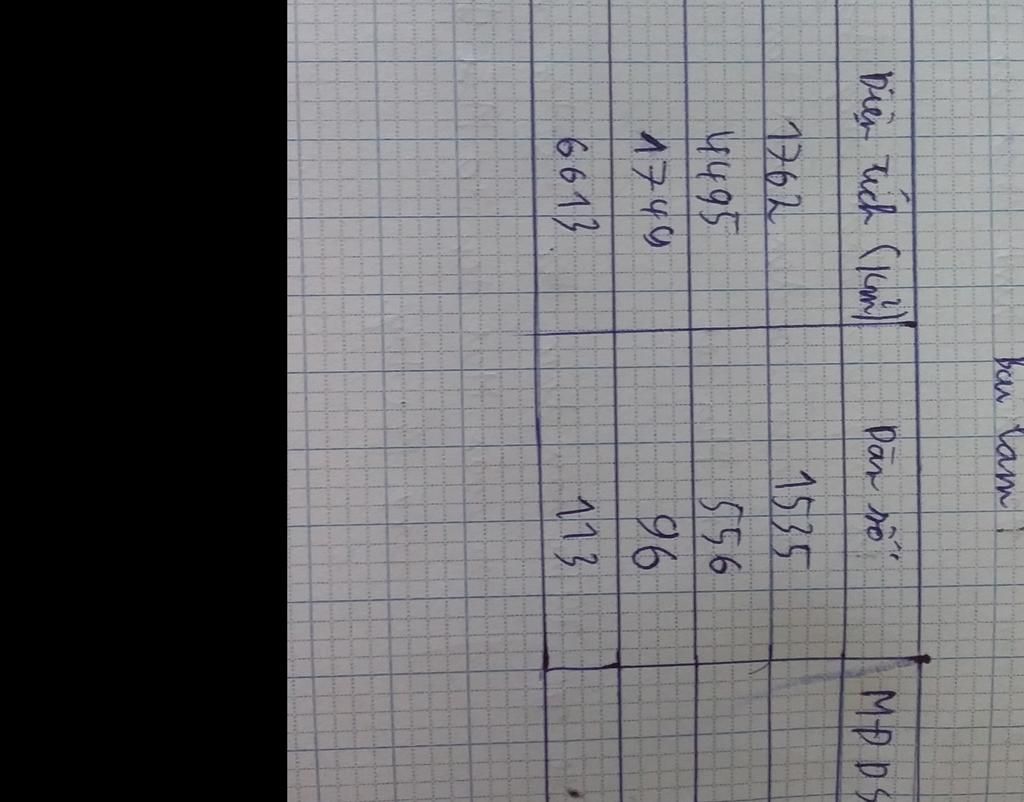 bài làm:
Diện tích (Km²) Dân số MĐDS
1762 1535
4495 556
1749 96
6613 113